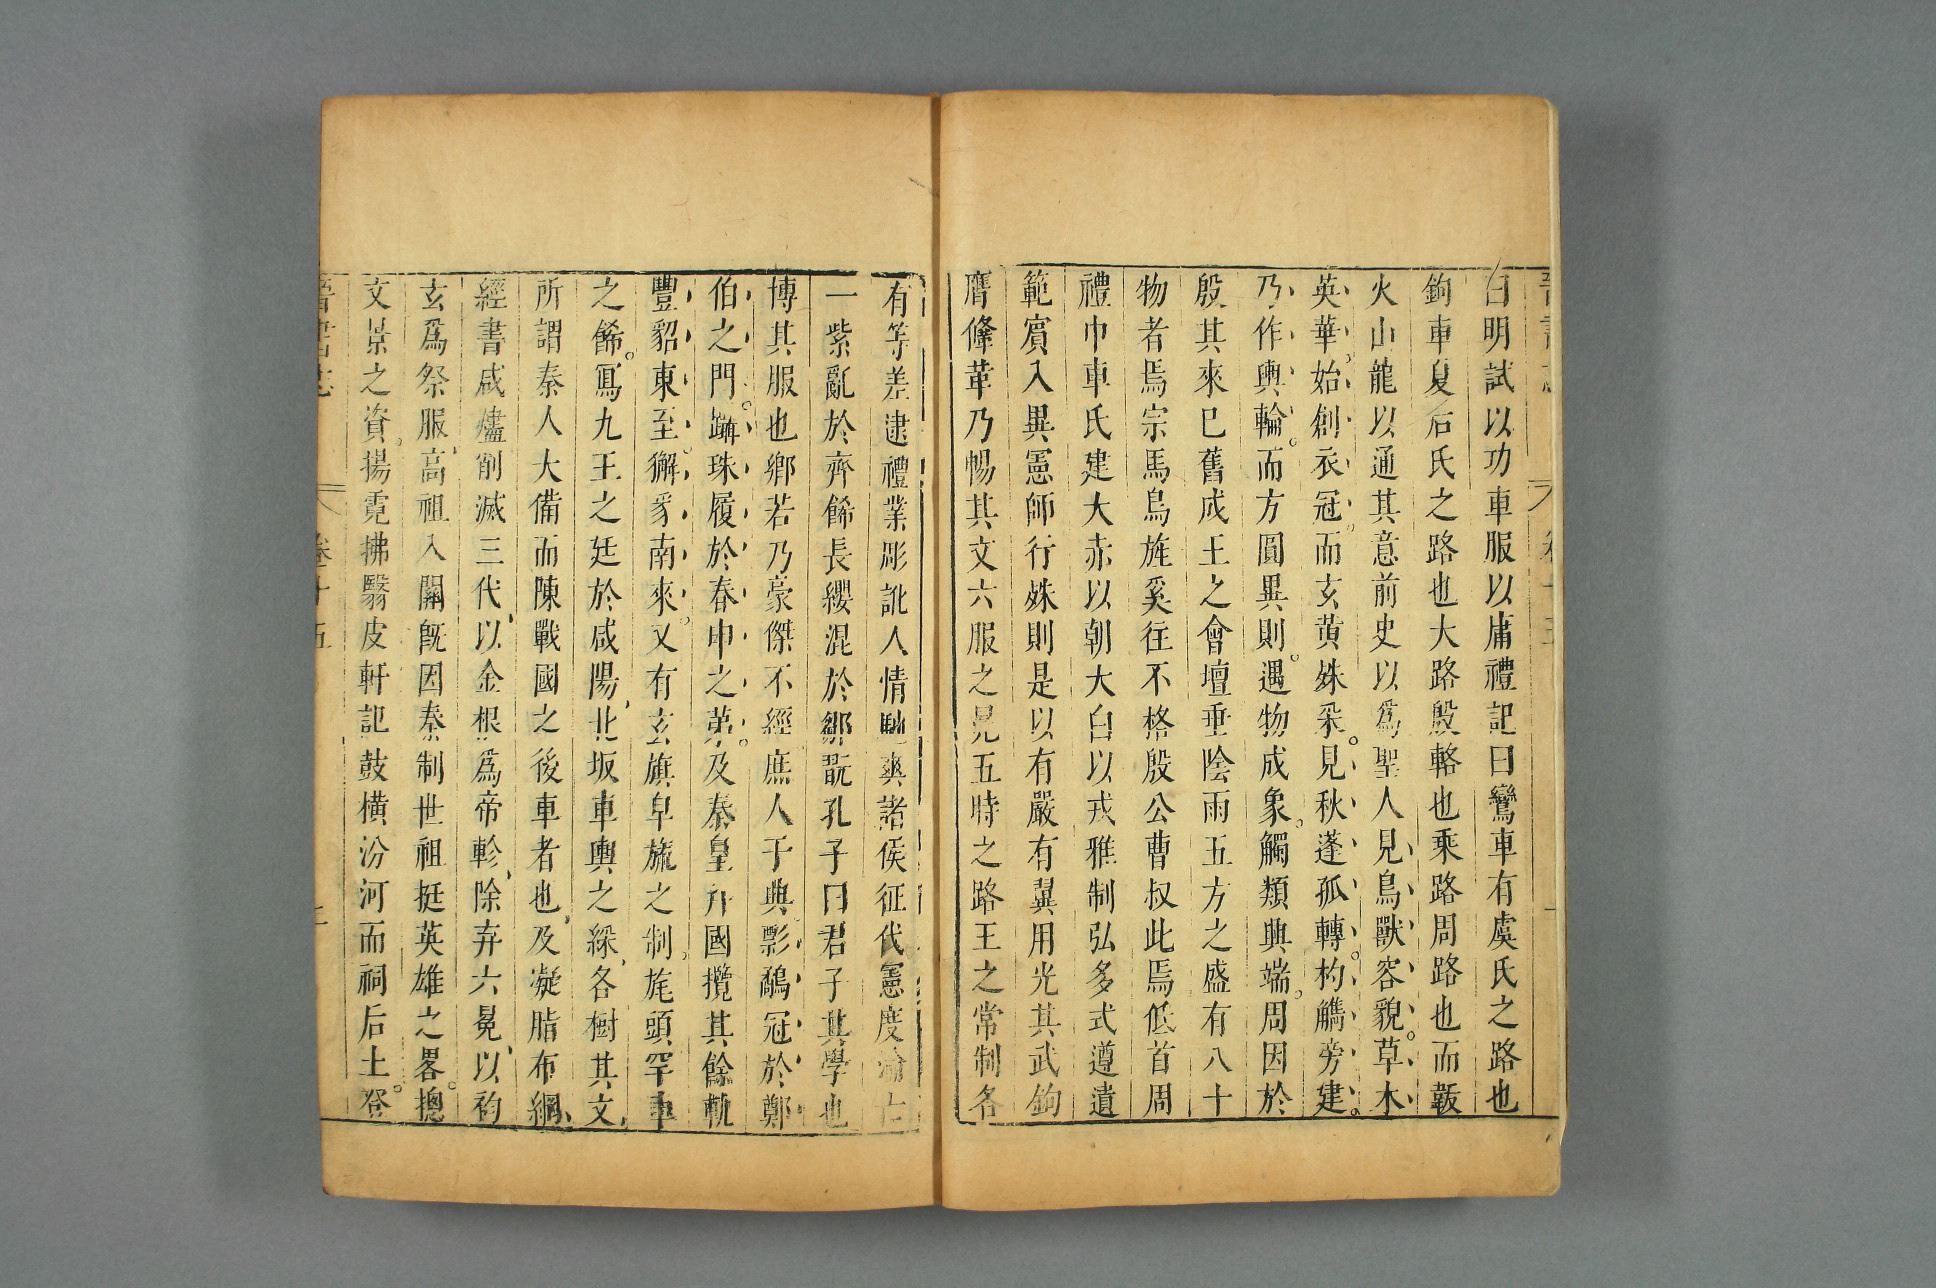 曰明試以功車服以庸禮記曰鸞車有虞氏之路也
鉤車夏后氏之路也大路殷輅也乘路周路也而韍
火山龍以通其意前史以爲聖人見鳥獸容貌草木
英華始創衣冠而玄黄殊采見秋蓬孤轉杓觿旁建
乃作輿輪而方圓異則遇物成象觸類興端周因於
殷其來巳舊成王之會壇垂陰雨五方之盛有八十
物者焉宗馬鳥旌奚往不格殷公曹叔此焉低首周
禮巾車氏建大赤以朝大白以戎雅制弘多式遵遺
範賔入異憲師行殊則是以有嚴有翼用光其武鉤
膺鞗革乃暢其文六服之冕五時之路王之常制各
有等差逮禮業彫訛人情馳爽諸侯征伐憲度淪
一紫亂於齊餙長纓混於鄒翫孔子曰君子其學也
博其服也鄉若乃豪傑不經庶人于典彯鷸冠於鄭
伯之門躡珠履於春申之第及秦皇并國攬其餘軌
豐貂東至獬豸南來又有玄旗皁旒之制旄頭罕車
之餙冩九王之廷於咸陽北坂車輿之綵各樹其文
所謂秦人大備而陳戰國之後車者也及凝脂布網
經書咸燼削滅三代以金根爲帝軫除弃六冕以袀
玄爲祭服高祖入關旣因秦制世祖挺英雄之畧揔
文景之資揚霓拂翳皮軒記鼓横汾河而祠后土登
卷十五